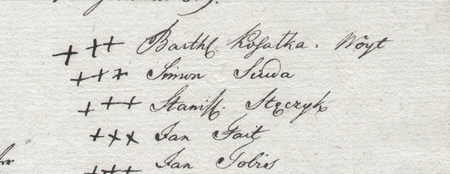 +++ Barth. Kosatka. Wóyt
+++ Simon Suda
+++ Stanisł. Stęczyk
+++ Jan Fait
+++ Jan Tobis